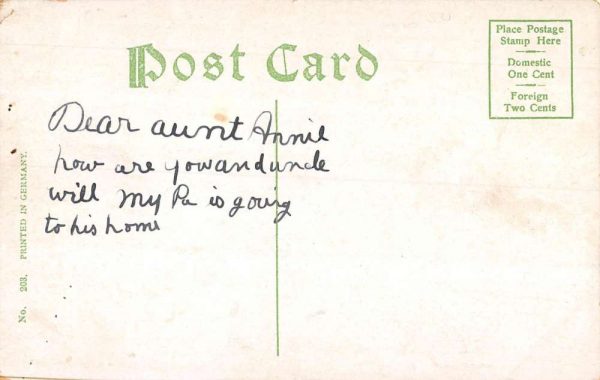 Post Card
Place Postage
Stamp Here
Domestic
One Cent
Foreign
Two Cents
Dear aunt Annie
how are yowanduncle
will my Pa is going
to his home
No. 203. PRINTED IN GERMANY.